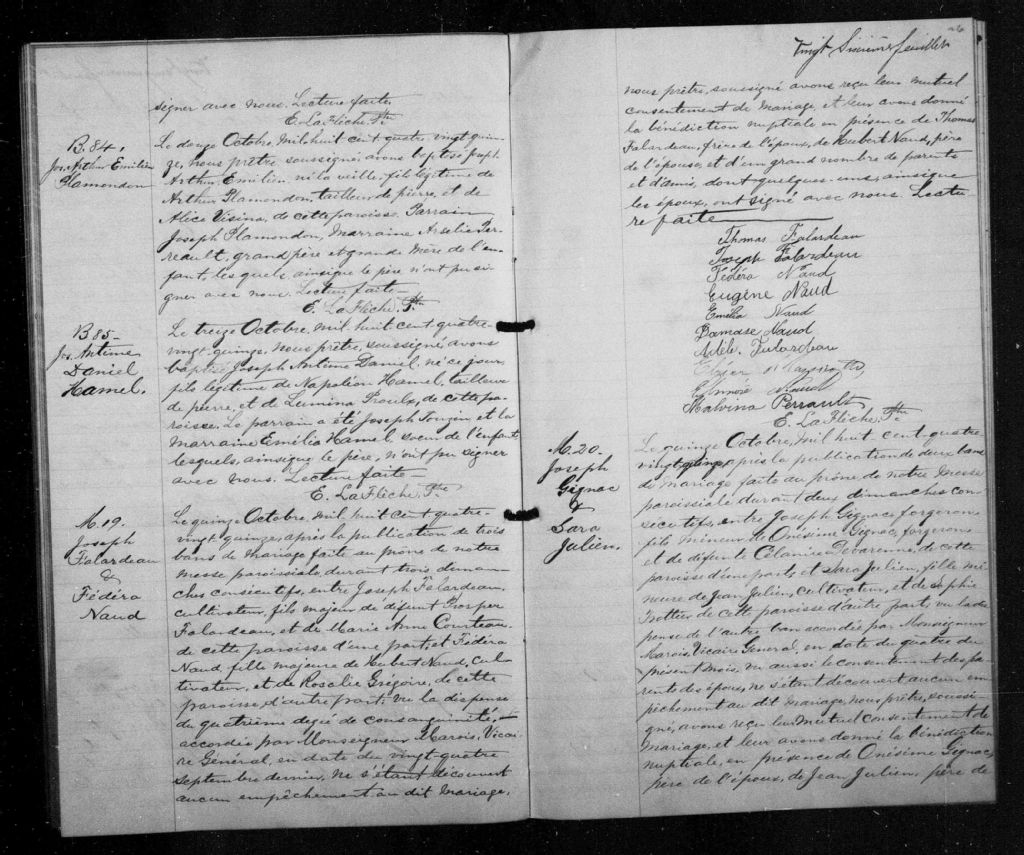 signer avec nous. Lecture faite.
E. LaFlèche Ptre
B. 84.
Jos. Arthur Emilien
Plamondon
Le douze Octobre, mil huit cent quatre, vingt quin-
ze, nous prêtre soussigné avons baptisé Joseph
Arthur Emilien né la veille, fils légitime de
Arthur Plamondon, tailleur de pierre, et de
Alice Visina, de cette paroisse. Parrain
Joseph Plamondon, Marraine Arselie Per-
reault, grand père et grande mère de l'en-
fant, lesquels ainsi que le père n'ont pu si-
gner avec nous. Lecture faite —
E. LaFlèche, Ptre
B 85 —
Jos. Antime
Daniel
Hamel.
Le treize Octobre, mil huit cent quatre-
vingt-quinze, nous prêtre, soussigné avons
baptisé Joseph Antime Daniel, né ce jour
fils légitime de Napoléon Hamel, tailleur
de pierre, et de Lumina Proulx, de cette pa-
roisse. Le parrain a été Joseph et la
Marraine Emilia Hamel soeur de l'enfant
lesquels, ainsi que le père, n'ont pu signer
avec nous. Lecture faite —
E. LaFlèche, Ptre
M. 19.
Joseph
Falardeau
&
Fédéra
Naud
Le quinze Octobre, mil, huit cent quatre-
vingt quinze, après la publication de trois
bans de mariage faite au prône de notre
messe paroissiale, durant trois diman-
ches consécutifs, entre Joseph Falardeau,
cultivateur, fils majeur de défunt Prosper
Falardeau, et de Marie Anne Courteau
de cette paroisse d'une part, et Fédéra
Naud, fille majeure de Hubert Naud, cul-
tivateur, et de Rosalie Grégoire, de cette
paroisse, d'autre part; vu la dispense
du quatrième degré de consanguinité, —
accordée par Monseigneur Marois, Vicai-
re Général, en date du vingt-quatre
Septembre dernier, ne s'étant découvert
aucun empêchement au dit mariage,
26
Vingt Sixième feuillet
nous prêtre, soussigné avons reçu leur mutuel
consentement de mariage, et leur avons donné
la bénédiction nuptiale en présence de Thomas
Falardeau, frère de l'époux, de Hubert Naud, père
de l'épouse, et d'un grand nombre de parents
et d'amis, dont quelques-uns, ainsi que
les époux, ont signé avec nous. Lectu-
re faite
Thomas Falardeau
Joseph Falardeau
Fédéra Naud
Eugène Naud
Emélia Naud
Damase Naud
Adèle. Falardeau
Naud
Malvina Perrault
E. LaFlèche, Ptre
M. 20.
Joseph
Gignac
&
Sara
Julien.
Le quinze Octobre, mil huit cent quatre-
vingt quinze, après la publication de deux bans
de mariage faite au prône de notre messe
paroissiale durant deux dimanches con-
sécutifs, entre Joseph Gignac, forgeron
fils mineur de Onésime Gignac, forgeron
et de défunte Célanire, de cette
paroisse d'une part, et Sara Julien, fille mi-
neure de Jean Julien, cultivateur, et de Sophie
Trottier, de cette paroisse d'autre part; vu la dis-
pense de l'autre ban accordée par Monseigneur
Marois, Vicaire Général, en date du quatre du
présent mois, vu aussi le consentement des pa-
rents des époux, ne s'étant découvert aucun em-
pêchement au dit mariage, nous prêtre, soussi-
gné, avons reçu leur mutuel consentement de
mariage, et leur avons donné la bénédiction
nuptiale, en présence de Onésime Gignac,
père de l'époux, de Jean Julien, père de